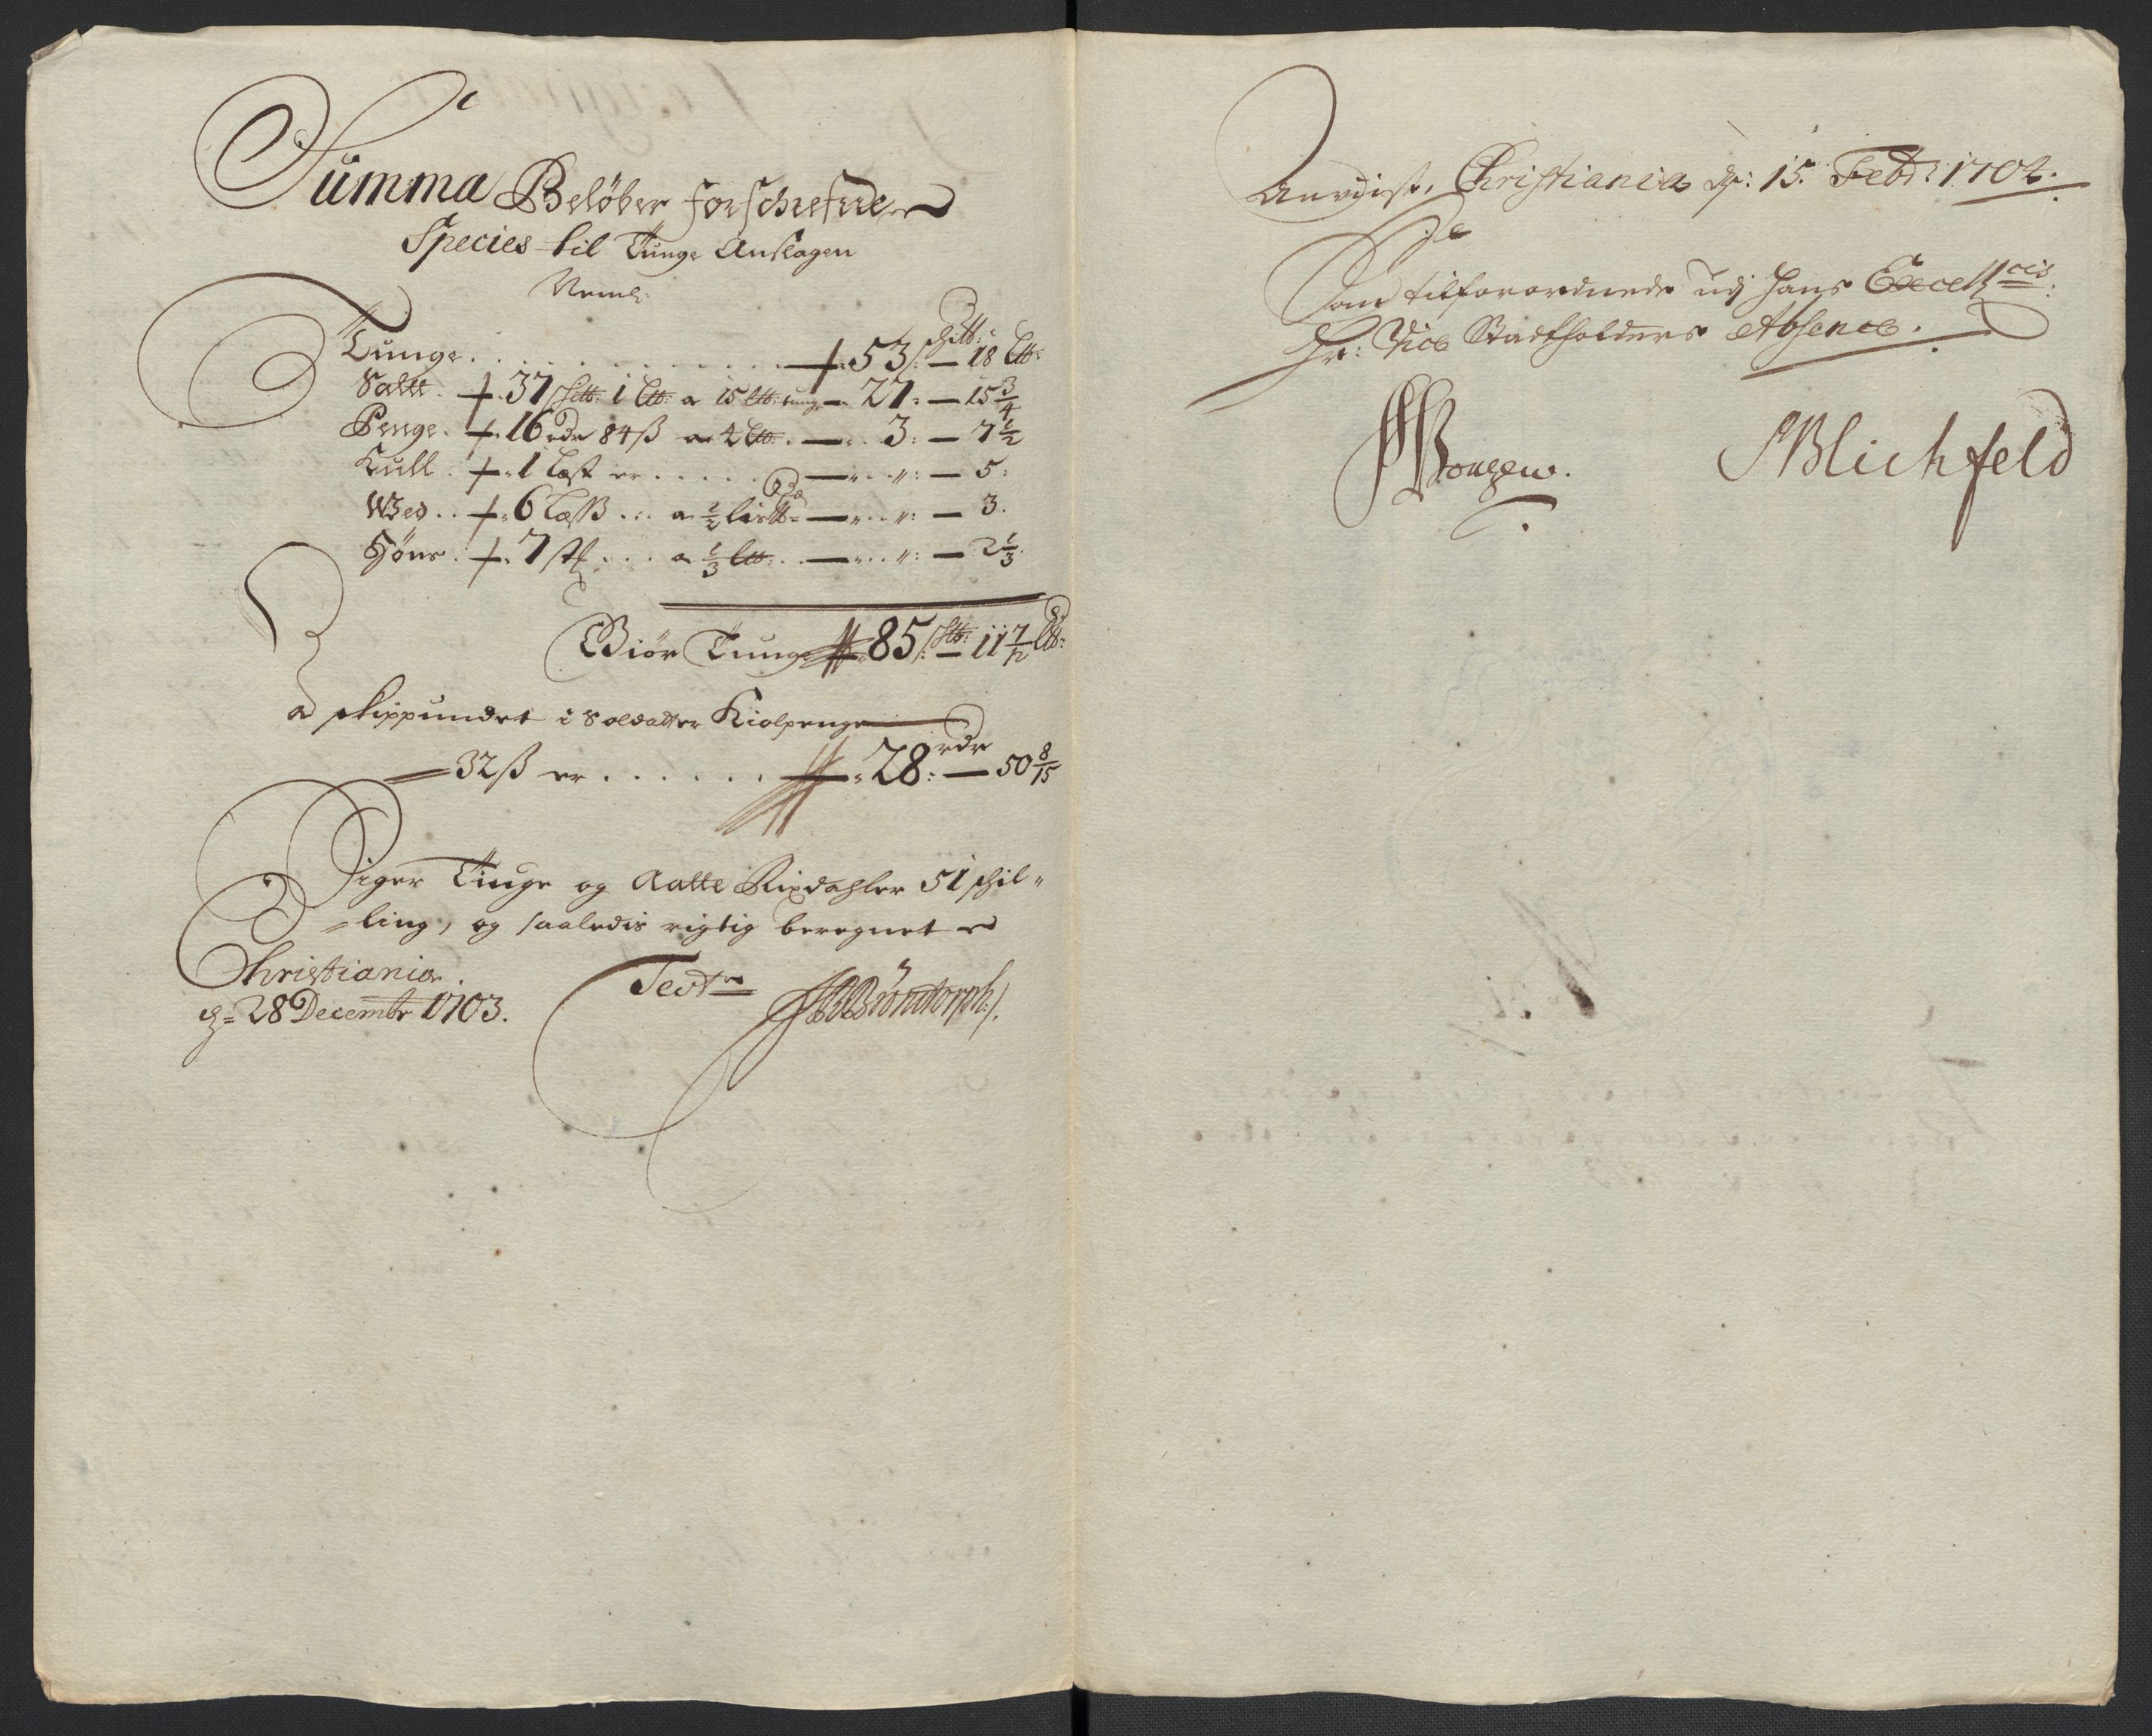 Summa Beløber forschrefne
Species til Tunge Anslagen
Neml:
Tunge . . . . 53 sch℔: — 18 l℔:
Saltt . 37 Sch℔: 1 l℔: a 15 l℔: tunge — 27: — 15 3/4
Penge . 16 rdr 84 ß a 4 l℔ . — 3: — 7 1/2
Kull . 1 Læst er . . . . — „ — 5:
Wed . . 6 Læss . . . a 1/2 lis℔ — „ — 3.
Høns . 7 stk . . . a 1/3 l℔: . — „ — 2 1/3.
Giør Tunge 85 s℔: — 11 7/12 l℔:
a skippundet i Soldatter Kiolpenge
32 ß er . . . . . . 28: rdr — 50 8/15
Siger Tiuge og Aatte Rixdahler 51 schil„
ling, og saaledis rigtig beregnet
Christiania
d= 28 Decembr 1703.
Test
Anvist, Christiania d: 15. Febr: 1704.
Som tilforordnede udj hans Excell cis:
Hr: Vice Stadtholders Absence.
SBlichfeld